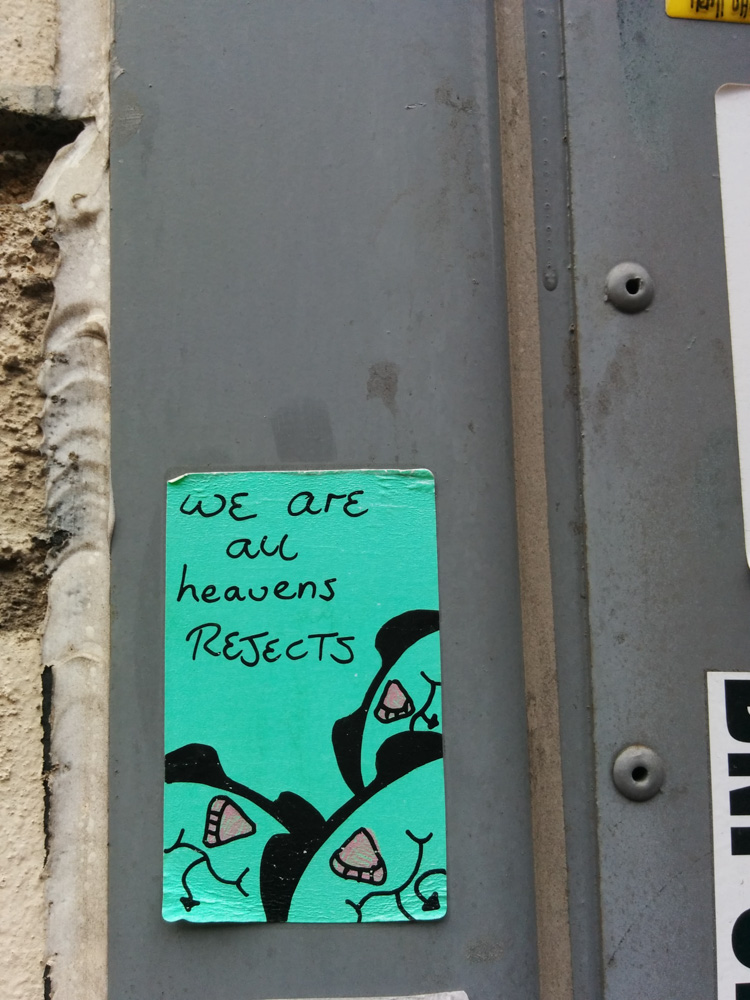 WE are
all
heavens
REJECTS